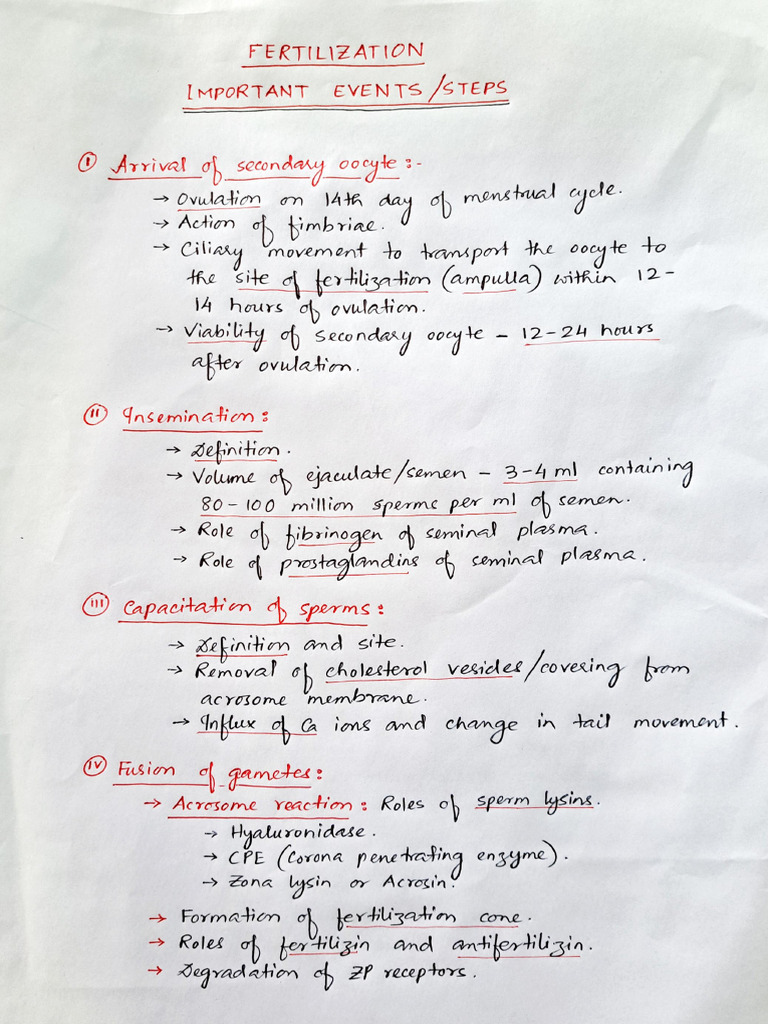 FERTILIZATION
IMPORTANT EVENTS/STEPS
(I) Arrival of secondary oocyte:-
→ Ovulation on 14th day of menstrual cycle.
→ Action of fimbriae.
→ Ciliary movement to transport the oocyte to
the site of fertilization (ampulla) within 12-
14 hours of ovulation.
→ Viability of secondary oocyte – 12-24 hours
after ovulation.
(II) Insemination:
→ Definition.
→ Volume of ejaculate/semen – 3-4 ml containing
80-100 million sperms per ml of semen.
→ Role of fibrinogen of seminal plasma.
→ Role of prostaglandins of seminal plasma.
(III) Capacitation of sperms:
→ Definition and site.
→ Removal of cholesterol vesicles/covering from
acrosome membrane.
→ Influx of Ca ions and change in tail movement.
(IV) Fusion of gametes:
→ Acrosome reaction: Roles of sperm lysins.
→ Hyaluronidase.
→ CPE (Corona penetrating enzyme).
→ Zona lysin or Acrosin.
→ Formation of fertilization cone.
→ Roles of fertilizin and antifertilizin.
→ Degradation of ZP receptors.